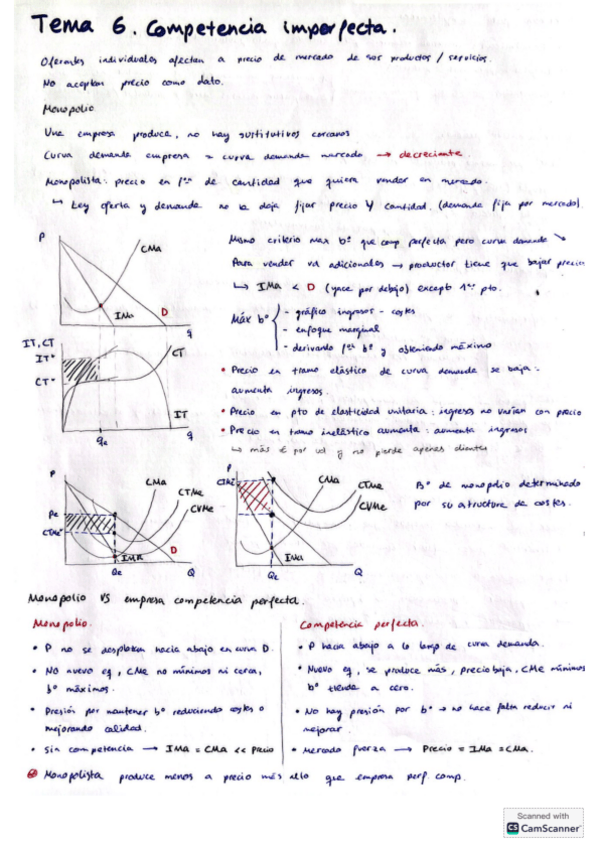 Tema 6. Competencia imperfecta.
Oferentes individuales afectan a precio de mercado de sus productos / servicios.
No aceptan precio como dato.
Monopolio
Una empresa produce, no hay sustitutivos cercanos
Curva demanda empresa = curva demanda mercado → decreciente.
Monopolista: precio en f de cantidad que quiera vender en mercado.
↳ Ley oferta y demanda no le deja fijar precio y cantidad. (demanda fija por mercado).
P
CMa
IMa
D
q
Mismo criterio max bº que comp perfecta pero curva demanda ↘
Para vender ud adicionales → productor tiene que bajar precio
↳ IMa < D (yace por debajo) excepto 1er pto.
Máx bº
- gráfico ingresos - costes
- enfoque marginal
- derivando bº y obteniendo máximo
IT, CT
ITº
CTº
CT
IT
qe
q
• Precio en tramo elástico de curva demanda se baja:
aumenta ingresos
• Precio en pto de elasticidad unitaria: ingresos no varían con precio
• Precio en tramo inelástico aumenta: aumenta ingresos
↳ más € por ud y no pierde apenas clientes
P
CMa
CTMe
CVMe
Pe
CTMe
D
IMa
Qe
Q
P
CTME
CMa
CTMe
CVMe
IMa
Qe
Q
Bº de monopolio determinado
por su estructura de costes.
Monopolio VS empresa competencia perfecta.
Monopolio.
• P no se desplaza hacia abajo en curva D.
• NO nuevo eq, CMe no mínimos ni cerca,
bº máximos.
• Presión por mantener bº reduciendo costes o
mejorando calidad.
• Sin competencia → IMa = CMa << Precio
Competencia perfecta.
• P hacia abajo a lo largo de curva demanda.
• Nuevo eq, se produce más, precio baja, CMe mínimos
bº tiende a cero.
• No hay presión por bº → no hace falta reducir ni
mejorar.
• Mercado fuerza → Precio = IMa = CMa.
Monopolista produce menos a precio más alto que empresa perf. comp.
Scanned with
CS CamScanner